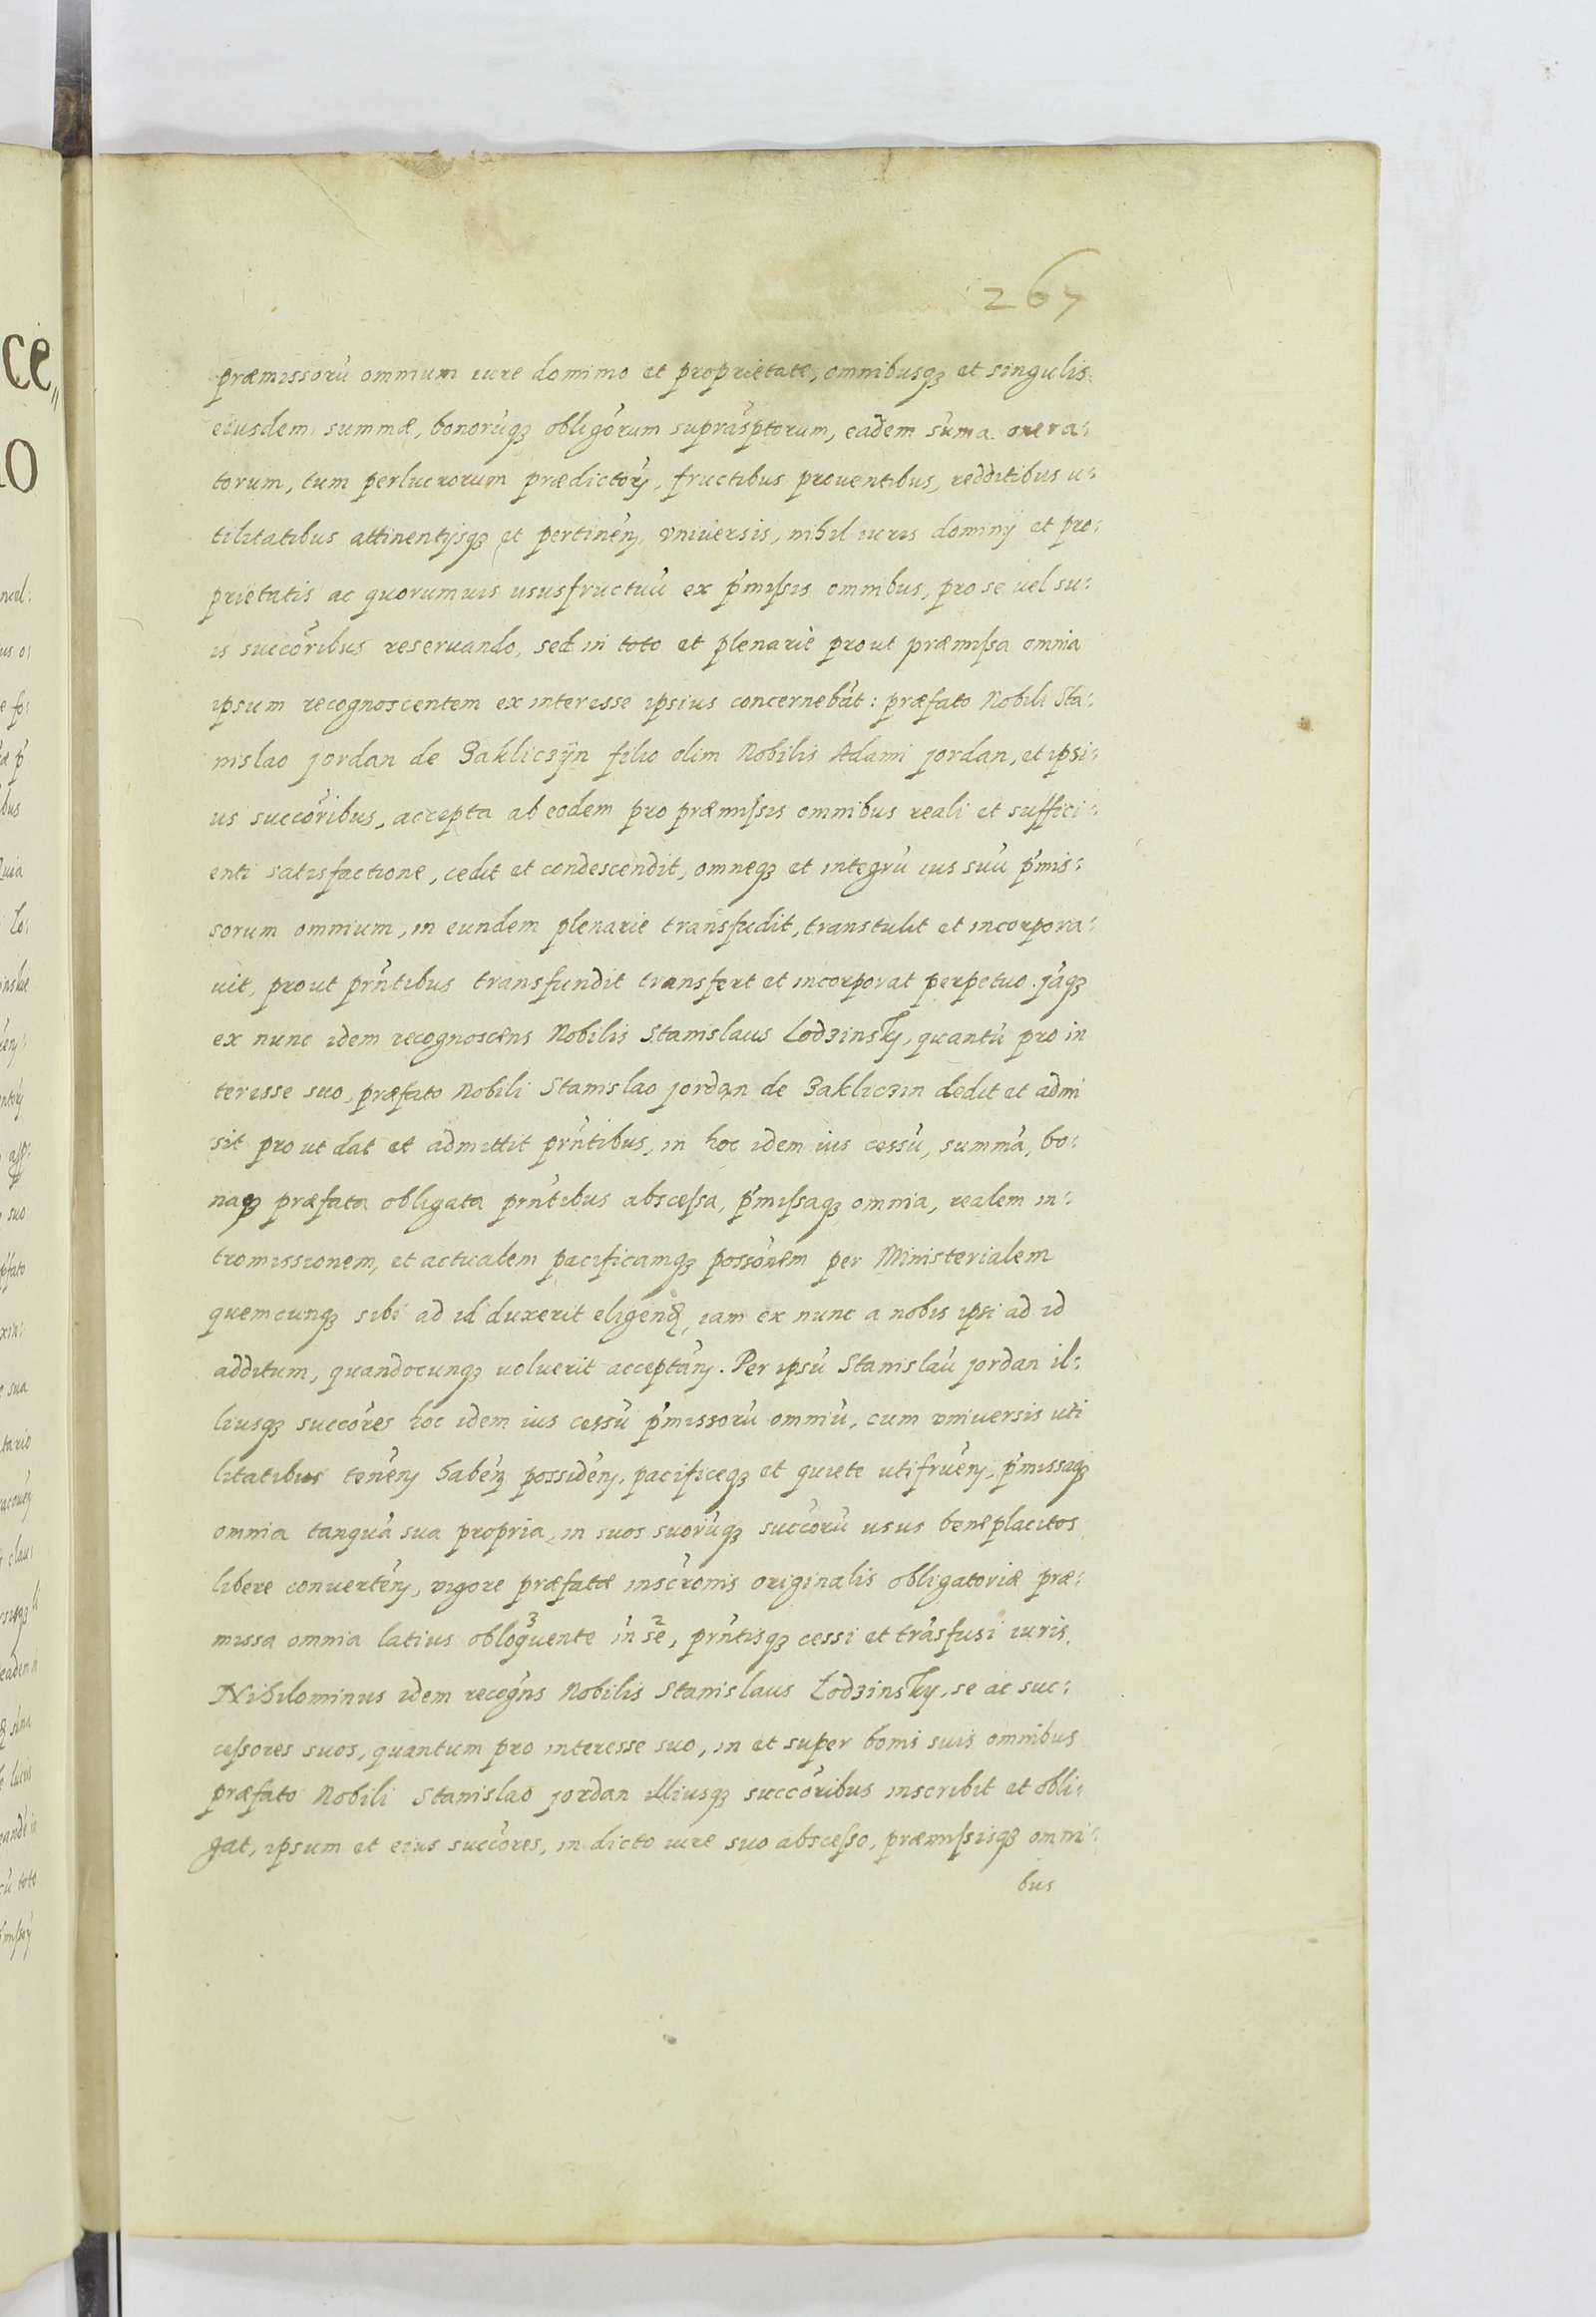 267
præmissorũ omnium iure dominio et proprietate, omnibusqꝫ et singulis
eiusdem summæ, bonorũqꝫ obligõrum suprãsptorum, eadem sũma onera:
torum, tum perlucrorum prædictorꝫ, fructibus prouentibus, redditibus u:
tilitatibus attinentijsqꝫ et pertineñ vniuersis, nihil iuris dominij et pro:
prietatis ac quorumuis ususfructuũ ex p̃mißis omnibus, pro se vel su:
is succõribus reseruando, sed in toto et plenariè prout præmißa omnia
ipsum recognoscentem ex interesse ipsius concernebãt: præfato Nobili Sta:
nislao Jordan de Zakliczÿn filio olim Nobilis Adami Jordan, et ipsi:
us succõribus, accepta ab eodem pro præmißis omnibus reali et suffici:
enti satisfactione, cedit et condescendit, omneqꝫ et integrũ ius suũ p̃mis:
sorum omnium, in eundem plenarie transfudit, transtulit et incorpora:
uit, prout pr̃ntibus transfundit transfert et incorporat perpetuo. Jãqꝫ
ex nunc idem recognoscens Nobilis Stanislaus Lodzinsky, quantũ pro in
teresse suo, præfato Nobili Stanislao Jordan de Zakliczin dedit et admi
sit prout dat et admittit pr̃ntibus, in hoc idem ius cessũ, summã, bo:
naqꝫ præfata obligata pr̃ntibus absceßa, p̃mißaqꝫ omnia, realem in:
tromissionem, et actualem pacificamqꝫ possõnem per Ministerialem
quemcunqꝫ sibi ad id duxerit eligenđ, iam ex nunc a nobis ipsi ad id
additum, quandocunqꝫ voluerit acceptañ. Per ipsũ Stanislaũ Jordan il:
liusqꝫ succõres hoc idem ius cessũ p̃missorũ omniũ, cum vniuersis uti
litatibus teneñ habeñ possideñ, pacificeqꝫ et quiete utifrueñ, p̃missaqꝫ
omnia tanquã sua propria, in suos suorũqꝫ succorũ usus beneplacitos
libere conuerteñ, vigore præfatæ inscr̃onis originalis obligatoriæ præ:
missa omnia latius obloquente 3 in se 2, pr̃ntisqꝫ cessi et trãsfusi iuris.
Nihilominus idem recogñs Nobilis Stanislaus Lodzinsky, se ac suc:
ceßores suos, quantum pro interesse suo, in et super bonis suis omnibus
præfato Nobili Stanislao Jordan illiusqꝫ succõribus inscribit et obli:
gat, ipsum et eius succõres, in dicto iure suo absceßo, præmißisqꝫ omni:
bus